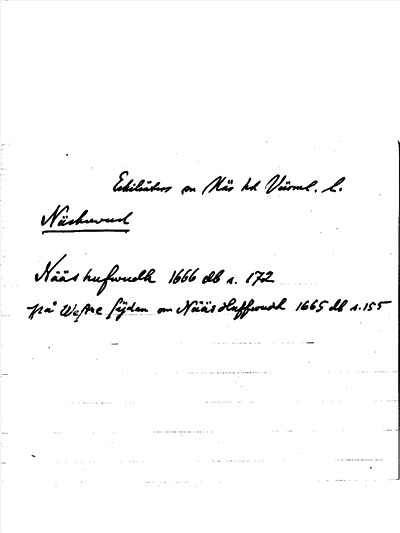 Eskilsäters sn Näs hd Värml. l.
Näshuvud
Nääs hufwudh 1666 db s. 172
på Westre sijdan om Nääs Huffwudh 1665 db s. 155